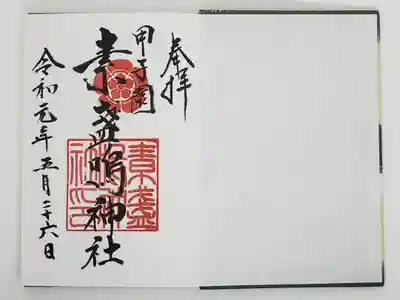 奉拝
甲子園
素盞嗚神社
令和元年五月二十六日